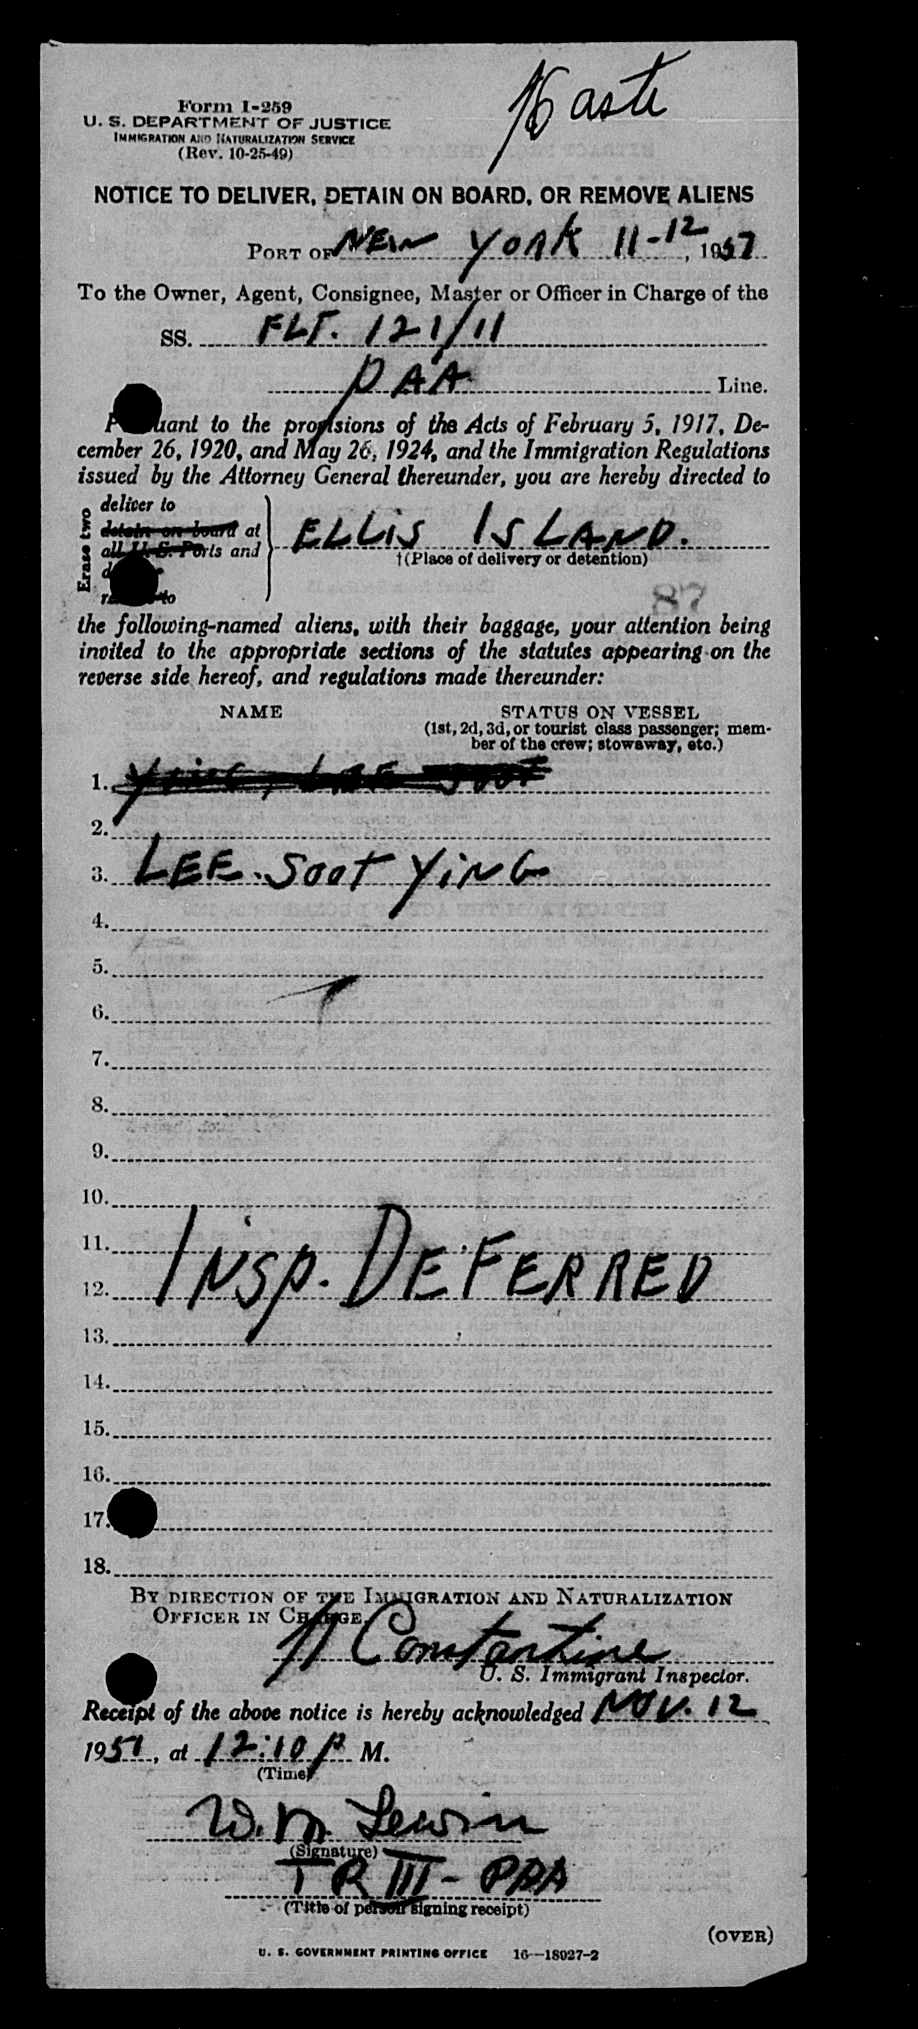 Haste
Form I-259
U. S. DEPARTMENT OF JUSTICE
IMMIGRATION AND NATURALIZATION SERVICE
(Rev. 10-25-49)
NOTICE TO DELIVER, DETAIN ON BOARD, OR REMOVE ALIENS
PORT OF NEW YORK 11-12, 1951
To the Owner, Agent, Consignee, Master or Officer in Charge of the
SS. FLT. 121/11
PAA Line.
Pursuant to the provisions of the Acts of February 5, 1917, De-
cember 26, 1920, and May 26, 1924, and the Immigration Regulations
issued by the Attorney General thereunder, you are hereby directed to
Erase two
deliver to
detain on board at
all U. S. Ports and
to
ELLIS ISLAND.
†(Place of delivery or detention)
87
the following-named aliens, with their baggage, your attention being
invited to the appropriate sections of the statutes appearing on the
reverse side hereof, and regulations made thereunder:
NAME STATUS ON VESSEL
(1st, 2d, 3d, or tourist class passenger; mem-
ber of the crew; stowaway, etc.)
1. YING, LEE SOOT
2.
3. LEE SOOT YING
4.
5.
6.
7.
8.
9.
10.
11.
INSP. DEFERRED
12.
13.
14.
15.
16.
17.
18.
BY DIRECTION OF THE IMMIGRATION AND NATURALIZATION
OFFICER IN CHARGE.
Constantine
U. S. Immigrant Inspector.
Receipt of the above notice is hereby acknowledged NOV. 12,
1951, at 12:10 P M.
(Time)
W. M. Lewin
(Signature)
TR III - PAA
(Title of person signing receipt)
(OVER)
U. S. GOVERNMENT PRINTING OFFICE 16—18927-2